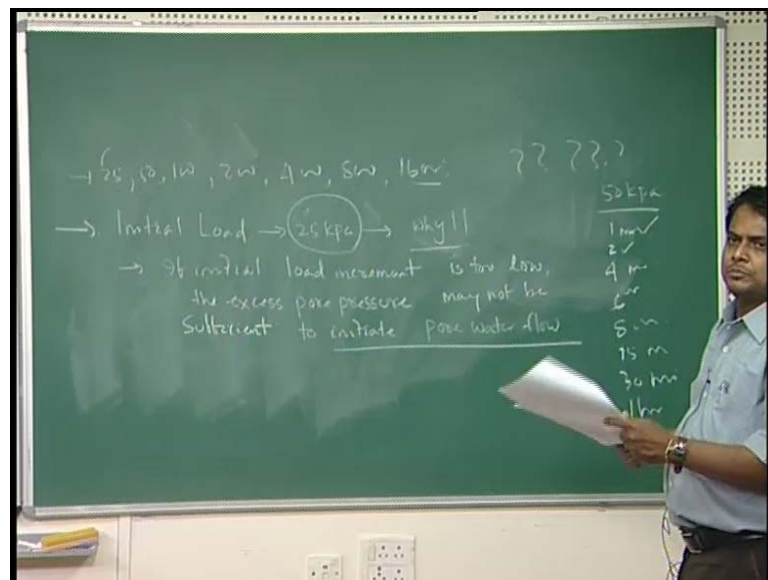 → 25, 50, 100, 200, 400, 800, 1600 ?? ??.?
→ Initial Load → 25 kpa → why!!
→ If initial load increment is too low,
the excess pore pressure may not be
sufficient to initiate pore water flow
50 kpa
1 min ✓
2 ✓
4 m
6
8 m
15 m
30 mi
1 hr